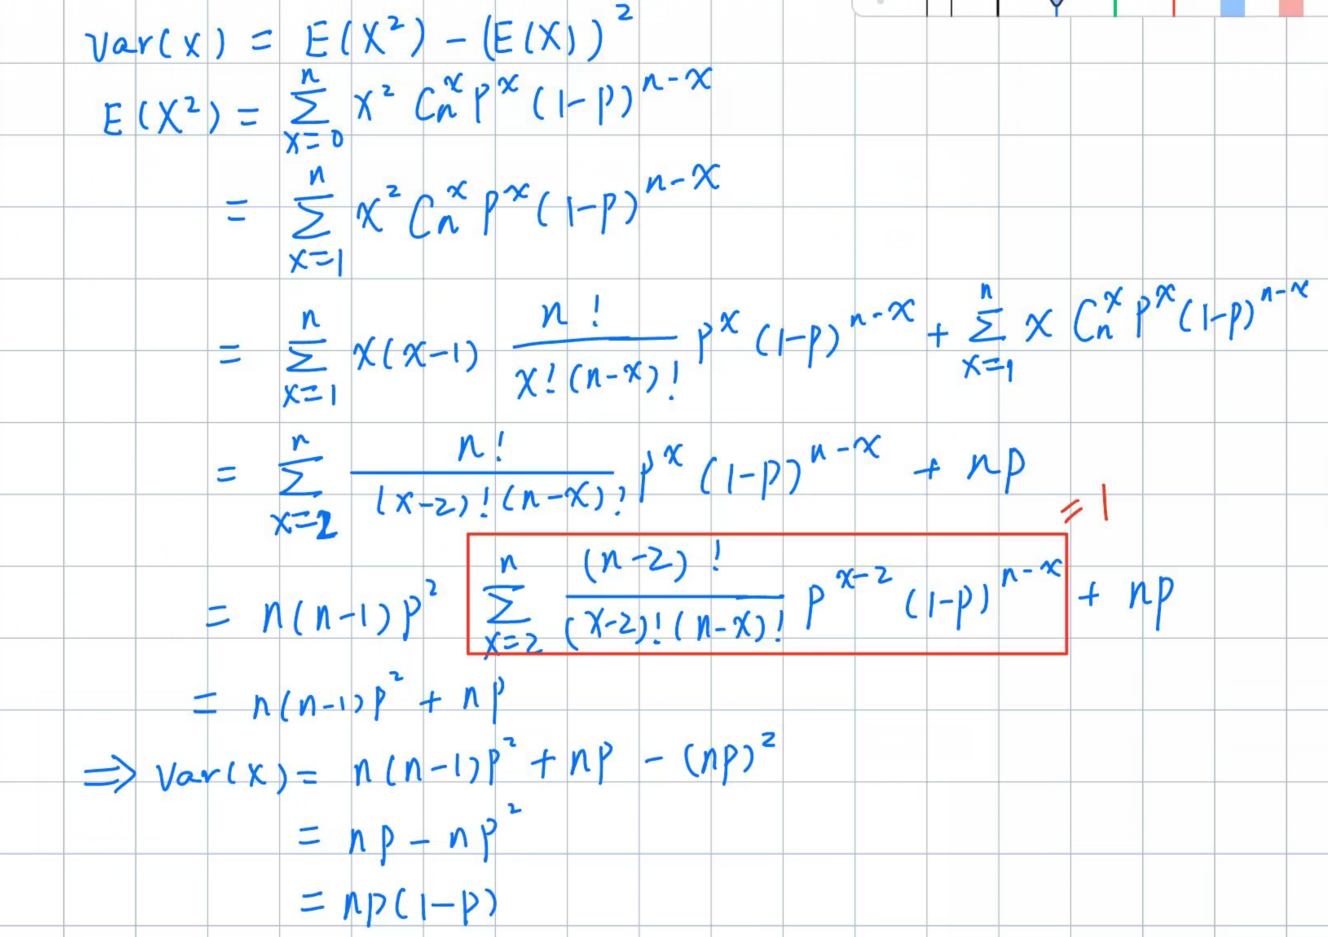 Var(X) = E(X²) - (E(X))²
E(X²) = ∑_{x=0}^{n} x² C_n^x p^x (1-p)^{n-x}
= ∑_{x=1}^{n} x² C_n^x p^x (1-p)^{n-x}
= ∑_{x=1}^{n} x(x-1) \frac{n!}{x!(n-x)!} p^x (1-p)^{n-x} + ∑_{x=1}^{n} x C_n^x p^x (1-p)^{n-x}
= ∑_{x=2}^{n} \frac{n!}{(x-2)!(n-x)!} p^x (1-p)^{n-x} + np
= n(n-1)p² ∑_{x=2}^{n} \frac{(n-2)!}{(x-2)!(n-x)!} p^{x-2} (1-p)^{n-x} + np
= 1
= n(n-1)p² + np
⇒ Var(X) = n(n-1)p² + np - (np)²
= np - np²
= np(1-p)